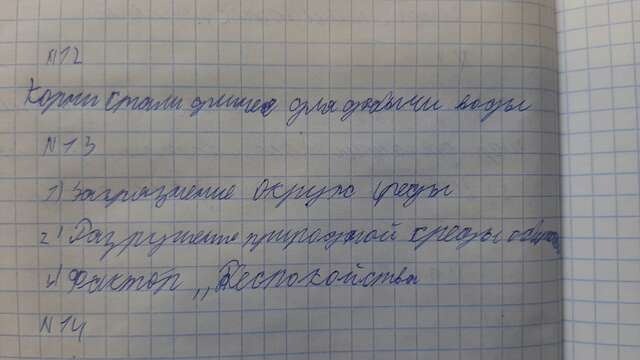 N12
Корни стали длинее для добычи воды
N13
1) Загрязнение окруж среды
2) Разрушение природной среды
4) Фактор „Беспокойства
N14